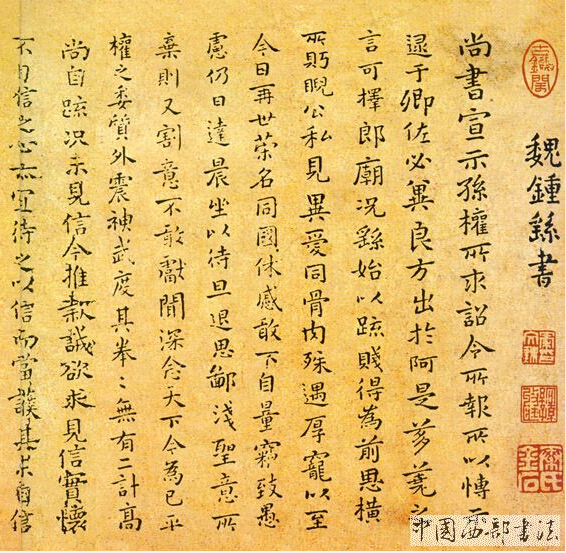 魏鍾繇書
尚書宣示孫權所求詔令所報所以博示
逮于卿佐必冀良方出於阿是芻蕘之
言可擇郎廟况繇始以疏賤得為前恩橫
所眄睨公私見異愛同骨肉殊遇厚寵以至
今日再世榮名同國休慼敢不自量竊致愚
慮仍日達晨坐以待旦退思鄙淺聖意所
棄則又割意不敢獻聞深念天下今為已平
權之委質外震神武度其拳〻無有二計高
尚自疏况未見信今推款誠欲求見信實懷
不自信之心亦宜待之以信而當護其未自信
中国西部书法